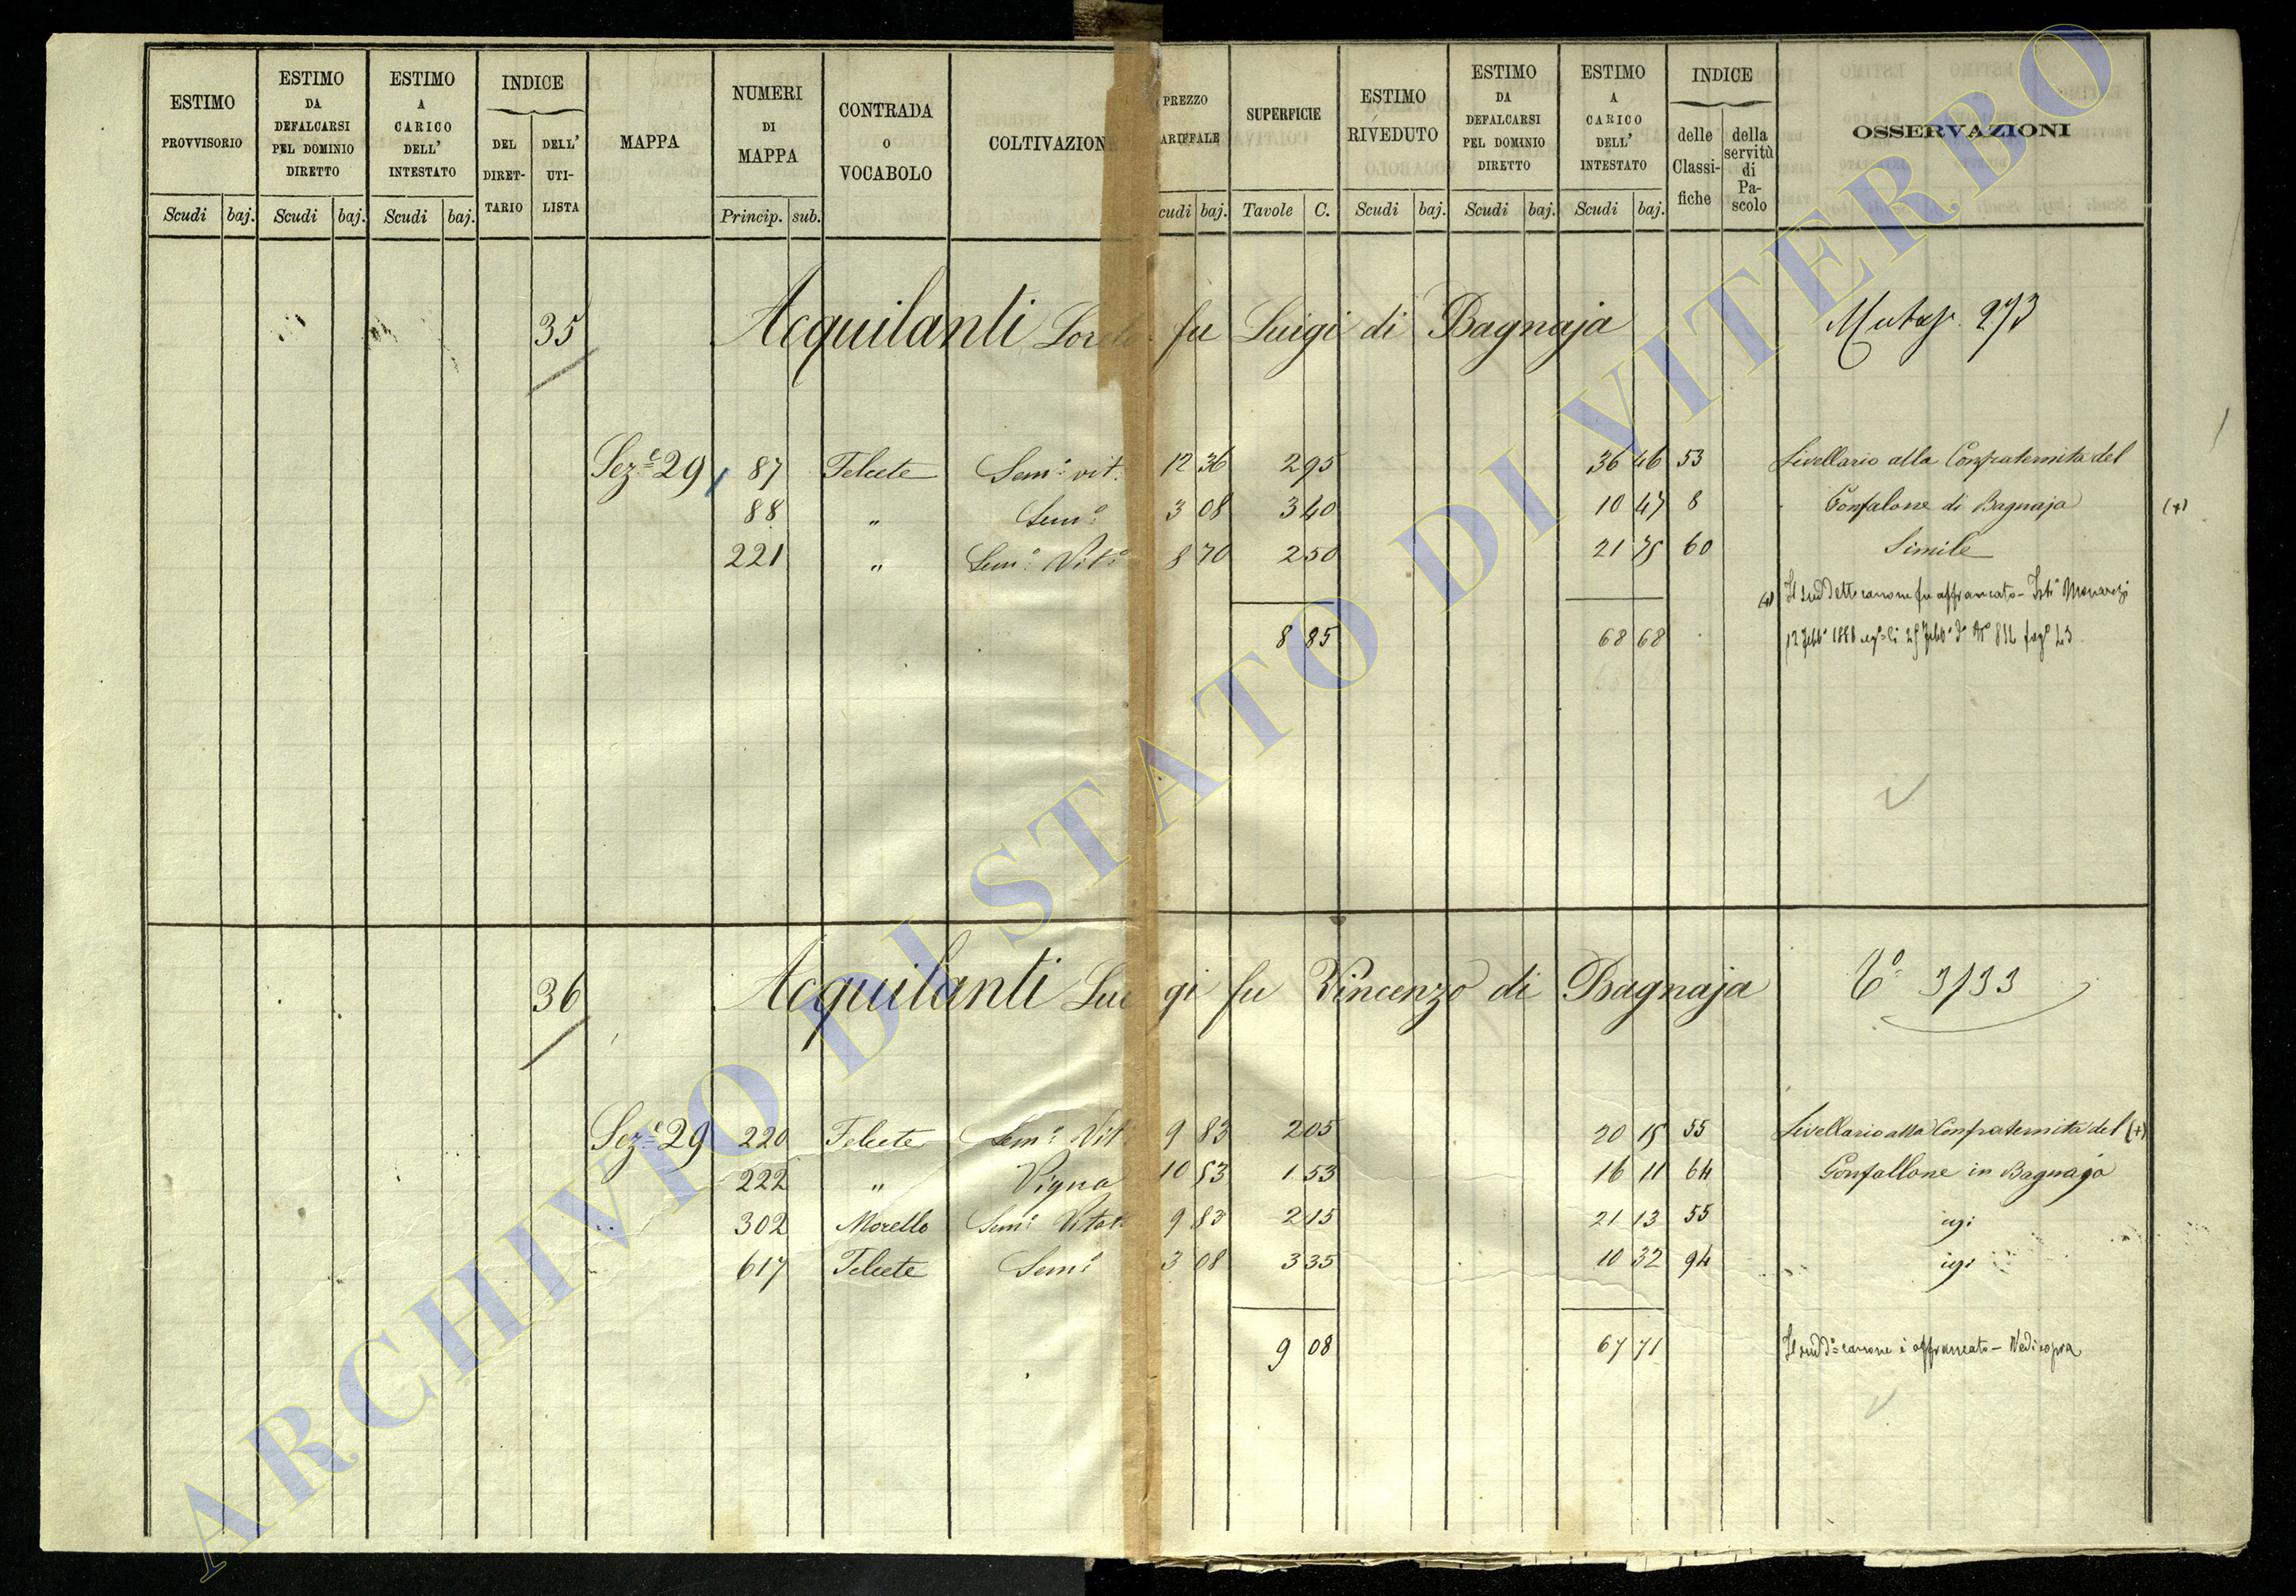 ESTIMO PROVVISORIO Scudi baj. ESTIMO DA DEFALCARSI PEL DOMINIO DIRETTO Scudi baj. ESTIMO A CARICO DELL' INTESTATO Scudi baj. INDICE DEL DIRET- TARIO DELL' UTI- LISTA MAPPA NUMERI DI MAPPA Princip. sub. CONTRADA O VOCABOLO COLTIVAZION PREZZO ARIFFALE cudi baj. SUPERFICIE Tavole C. ESTIMO RIVEDUTO Scudi baj. ESTIMO DA DEFALCARSI PEL DOMINIO DIRETTO Scudi baj. ESTIMO A CARICO DELL' INTESTATO Scudi baj. INDICE delle Classi- fiche della servitù di Pa- scolo OSSERVAZIONI
35 Acquilanti fu Luigi di Bagnaja 273
Sez.e 29 87 Telcete Sem.o vit. 12 36 2 95 36 46 53 Livellario alla Confraternita del
88 " Sem.o 3 08 3 40 10 47 8 Gonfalone di Bagnaja (+)
221 " Sem.o Vit.o 8 70 2 50 21 75 60 Simile
(+) Il suddetto canone fu affrancato -
8 85 68 68 12 Febb.o
36 Acquilanti Luigi fu Vincenzo di Bagnaja 3133
Sez.e 29 220 Telcete Sem.o Vit. 9 83 2 05 20 15 55 Livellario alla Confraternita del (+)
222 " Vigna 10 53 1 53 16 11 64 Gonfallone in Bagnaja
302 Morello Sem.o Vitat. 9 83 2 15 21 13 55
617 Telcete Sem.o 3 08 3 35 10 32 94
9 08 67 71 Il sudd.o canone è affrancato - Vedi sopra
ARCHIVIO DI STATO DI VITERBO